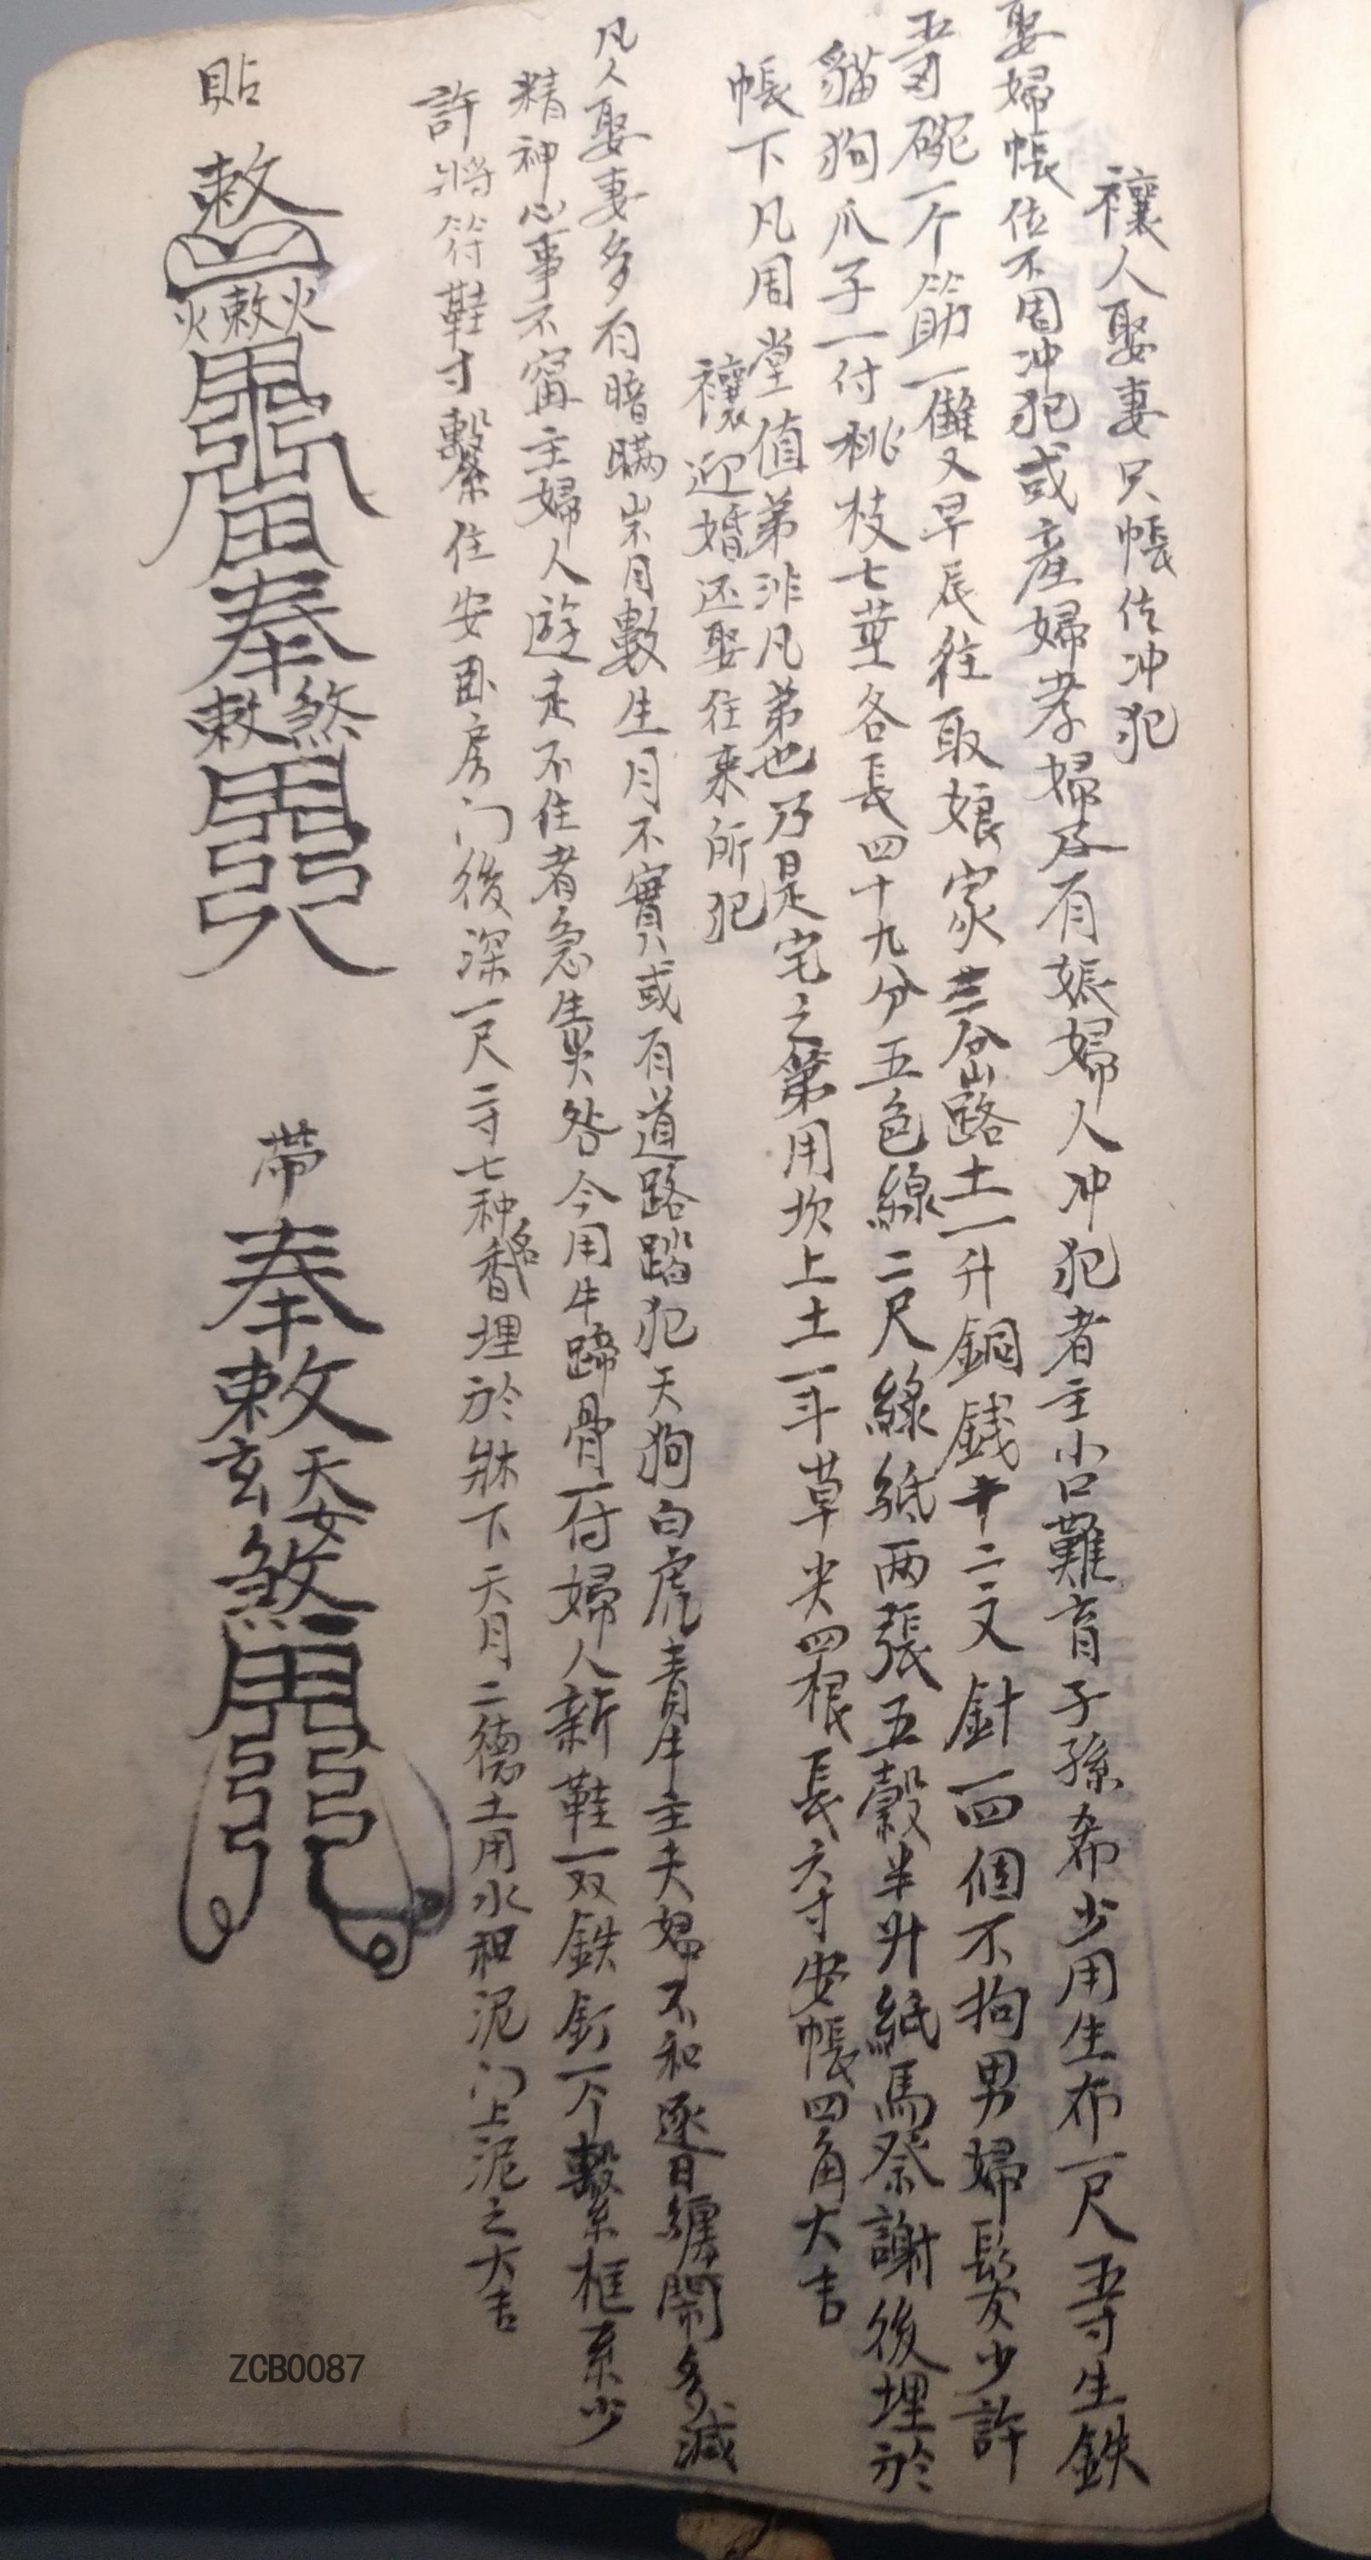 禳人娶妻只帳位冲犯
娶婦帳位不周冲犯或產婦孝婦及有娠婦人冲犯者主小口難育子孫希少用生布一尺五寸生鉄
五寸碗一个筯一雙又早辰往取娘家三岔路土一升銅銭十二文針一四個不拘男婦髮少許
貓狗爪子一付桃枝七莖各長四十九分五色線二尺綠紙两張五穀半升紙馬祭謝後埋於
帳下凡周堂值苐非凡苐也乃是宅之第用坎上土一斗草尖四根長六寸安帳四角大吉
禳迎婚还娶往来所犯
凡人娶妻多有暗瞞岁月數生月不實或有道路踏犯天狗白虎青牛主夫婦不和逐日纏鬧多减
精神心事不寧主婦人遊走不住者急生災咎今用牛蹄骨一付婦人新鞋一双鉄釘一个繫框系少
許將符鞋寸繫住安卧房门後深一尺二寸七种名香埋於牀下天月二德土用水和泥门上泥之大吉
貼 敕 火敕火 奉 敕煞
帶 奉敕 玄天女 煞
ZCB0087